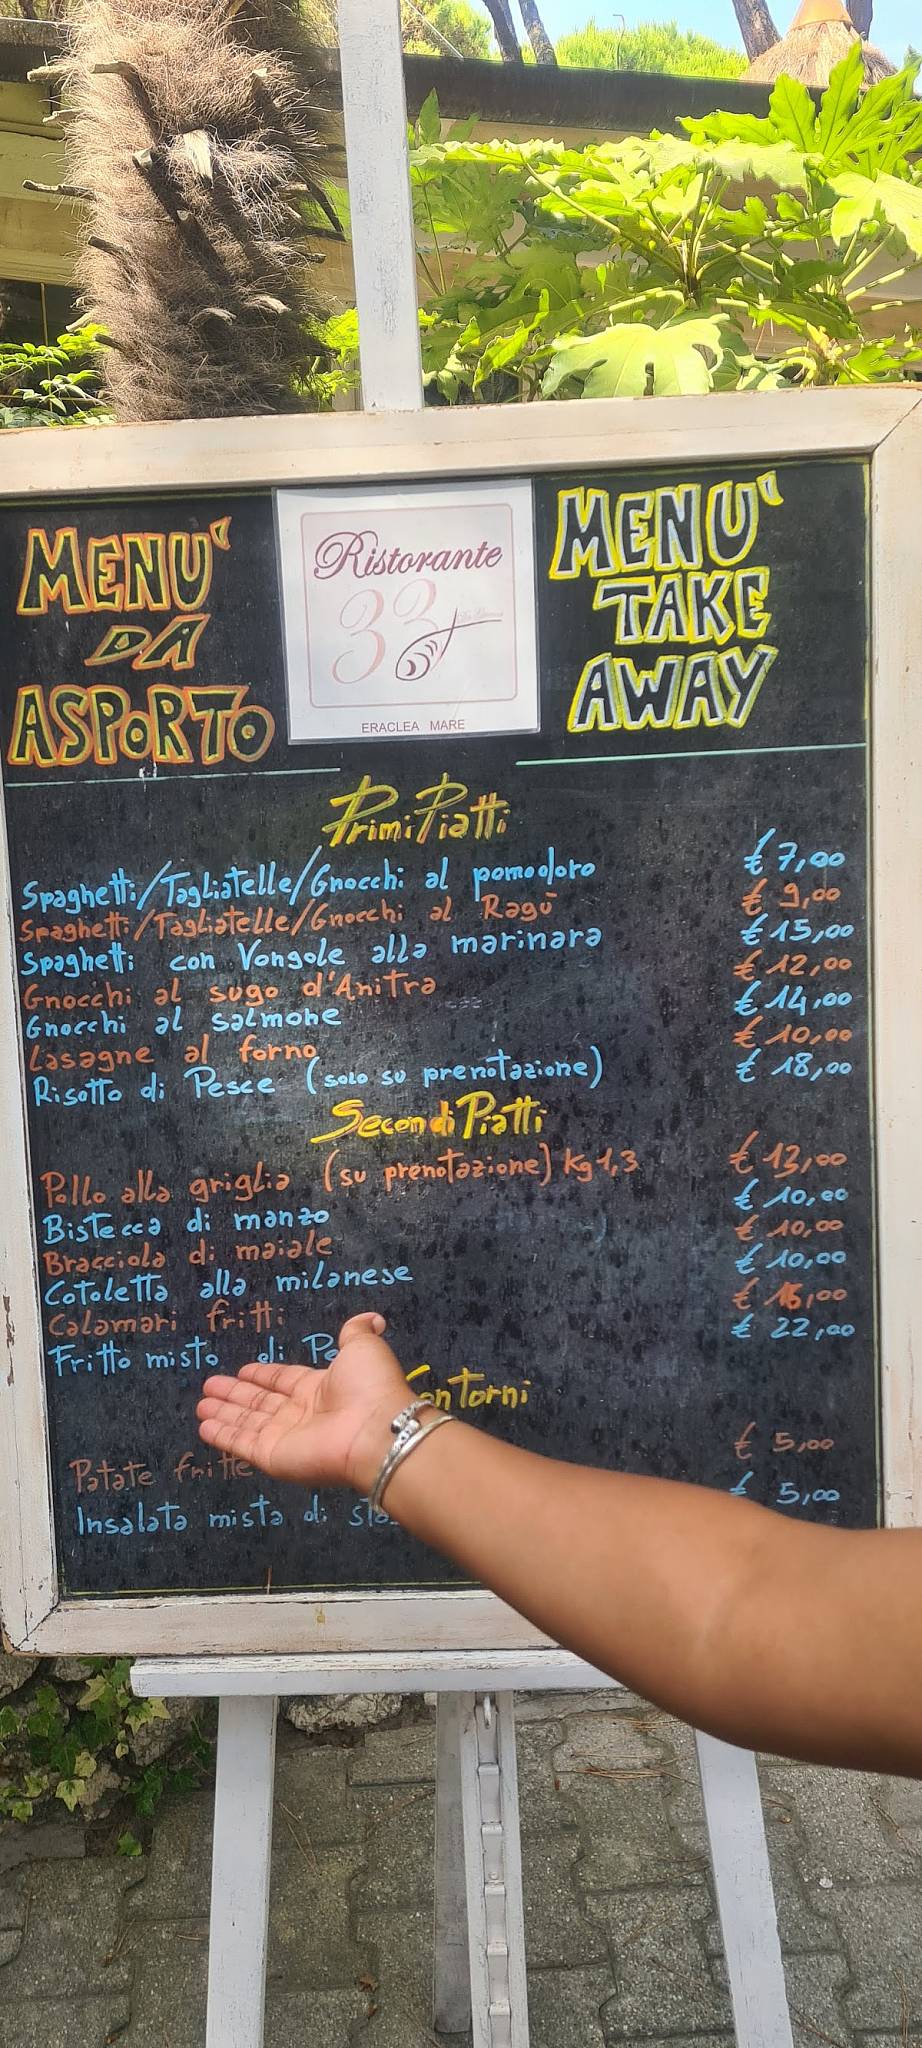 MENU'
DA
ASPORTO
Ristorante
33
ERACLEA MARE
MENU'
TAKE
AWAY
Primi Piatti
Spaghetti/Tagliatelle/Gnocchi al pomodoro € 7,00
Spaghetti/Tagliatelle/Gnocchi al Ragù € 9,00
Spaghetti con Vongole alla marinara € 15,00
Gnocchi al sugo d'Anitra € 12,00
Gnocchi al salmone € 14,00
Lasagne al forno € 10,00
Risotto di Pesce (solo su prenotazione) € 18,00
Secondi Piatti
Pollo alla griglia (su prenotazione) Kg 1,3 € 13,00
Bistecca di manzo € 10,00
Bracciola di maiale € 10,00
Cotoletta alla milanese € 10,00
Calamari fritti €
Fritto misto di € 22,00
Patate fritte € 5,00
Insalata mista di € 5,00